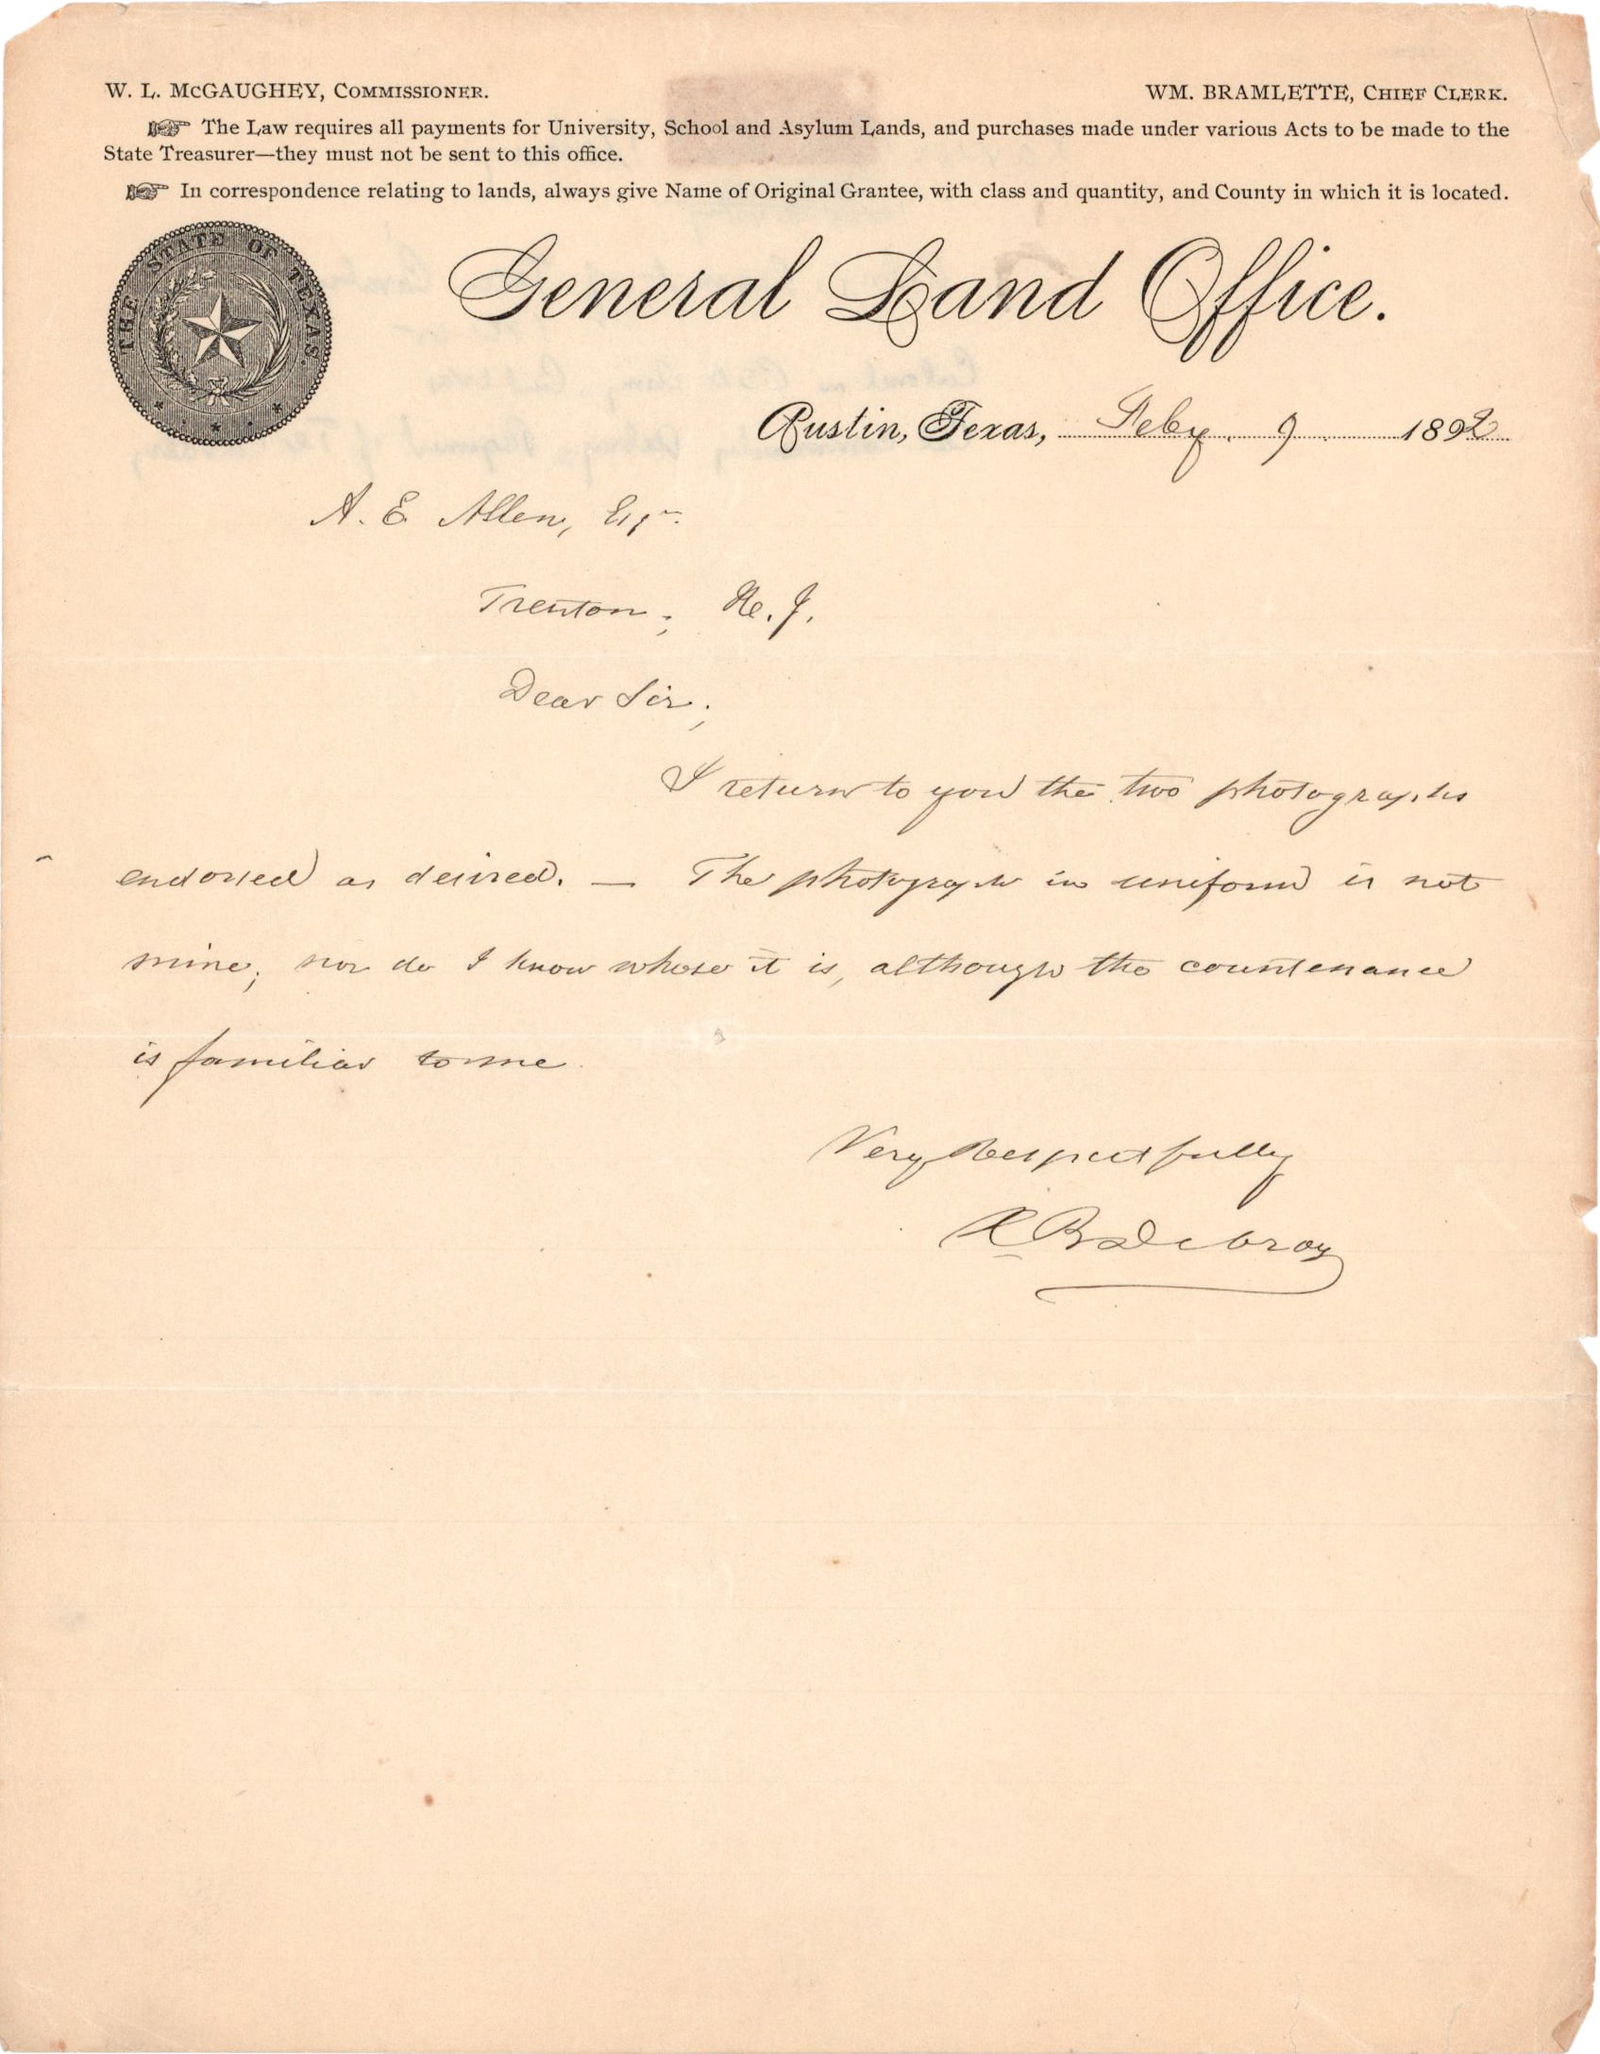 W. L. McGAUGHEY, COMMISSIONER. WM. BRAMLETTE, CHIEF CLERK.
The Law requires all payments for University, School and Asylum Lands, and purchases made under various Acts to be made to the
State Treasurer—they must not be sent to this office.
In correspondence relating to lands, always give Name of Original Grantee, with class and quantity, and County in which it is located.
THE STATE OF TEXAS.
General Land Office.
Austin, Texas, Feby. 9 1892
A. E. Allen, Esqr.
Trenton; N. J.
Dear Sir;
I return to you the two photographs
endorsed as desired. — The photograph in uniform is not
mine; nor do I know whose it is, although the countenance
is familiar to me.
Very Respectfully
X B Debray